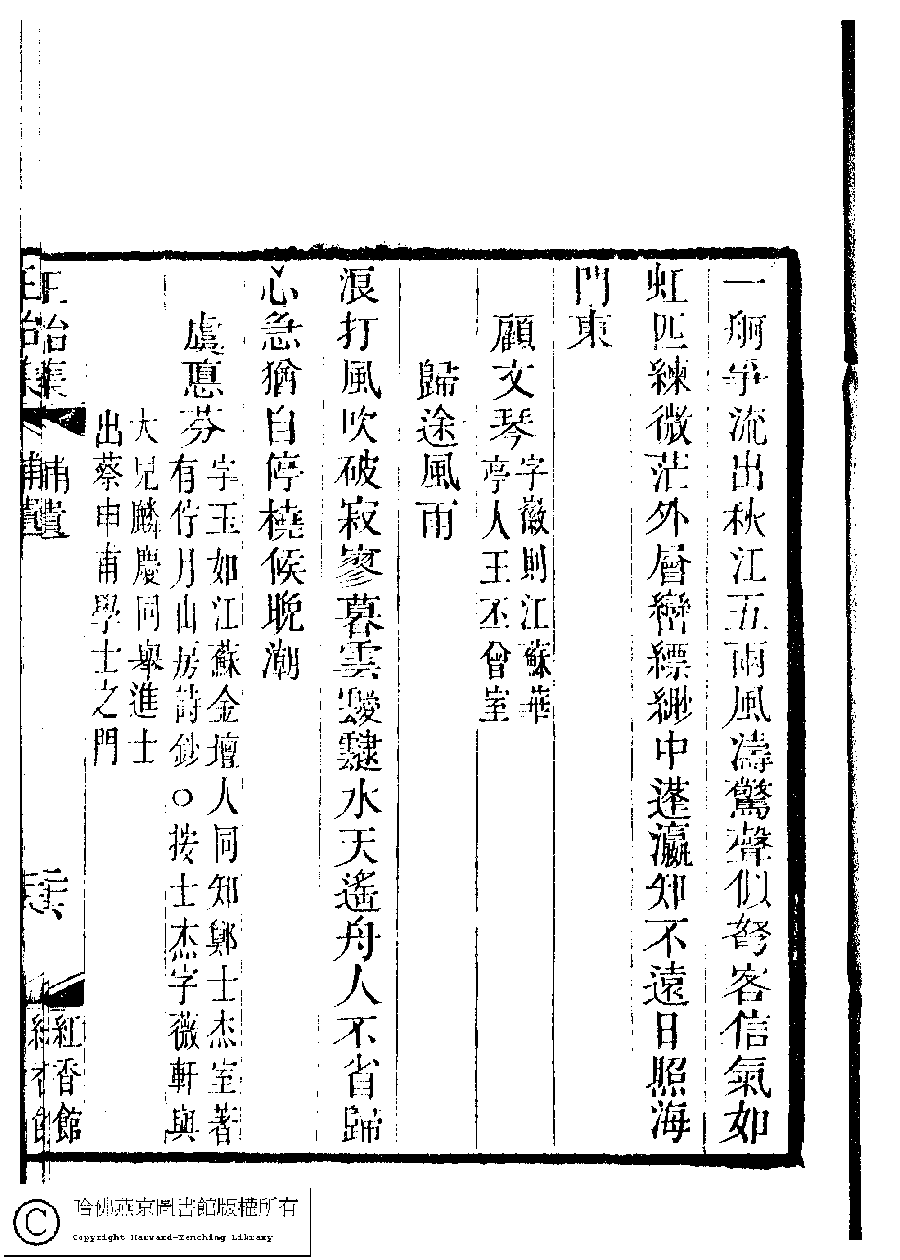 一舸爭流出秋江五兩風濤驚聲似弩客信氣如
虹匹練微茫外層巒縹緲中蓬瀛知不遠日照海
門東
顧文琴字徽則江蘇華
亭人王丕曾室
歸途風雨
浪打風吹破寂寥暮雲靉靆水天遙舟人不省歸
心急猶自停橈候晚潮
虞惪芬字玉如江蘇金壇人同知鄭士杰室著
有竹月山房詩鈔○按士杰字薇軒與
大兒麟慶同舉進士
出蔡申甫學士之門
正始集
補遺
紅香館
哈佛燕京圖書館版權所有
Copyright Harvard-Yenching Library